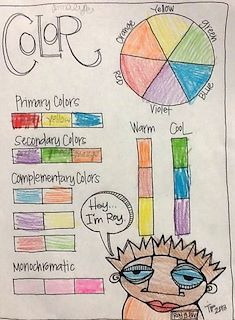 COLOR
Yellow
Orange
green
RED
BLUE
Violet
Primary Colors
yellow
Secondary Colors
Complementary Colors
Monochromatic
Warm
Cool
Hey...
I'm Roy.